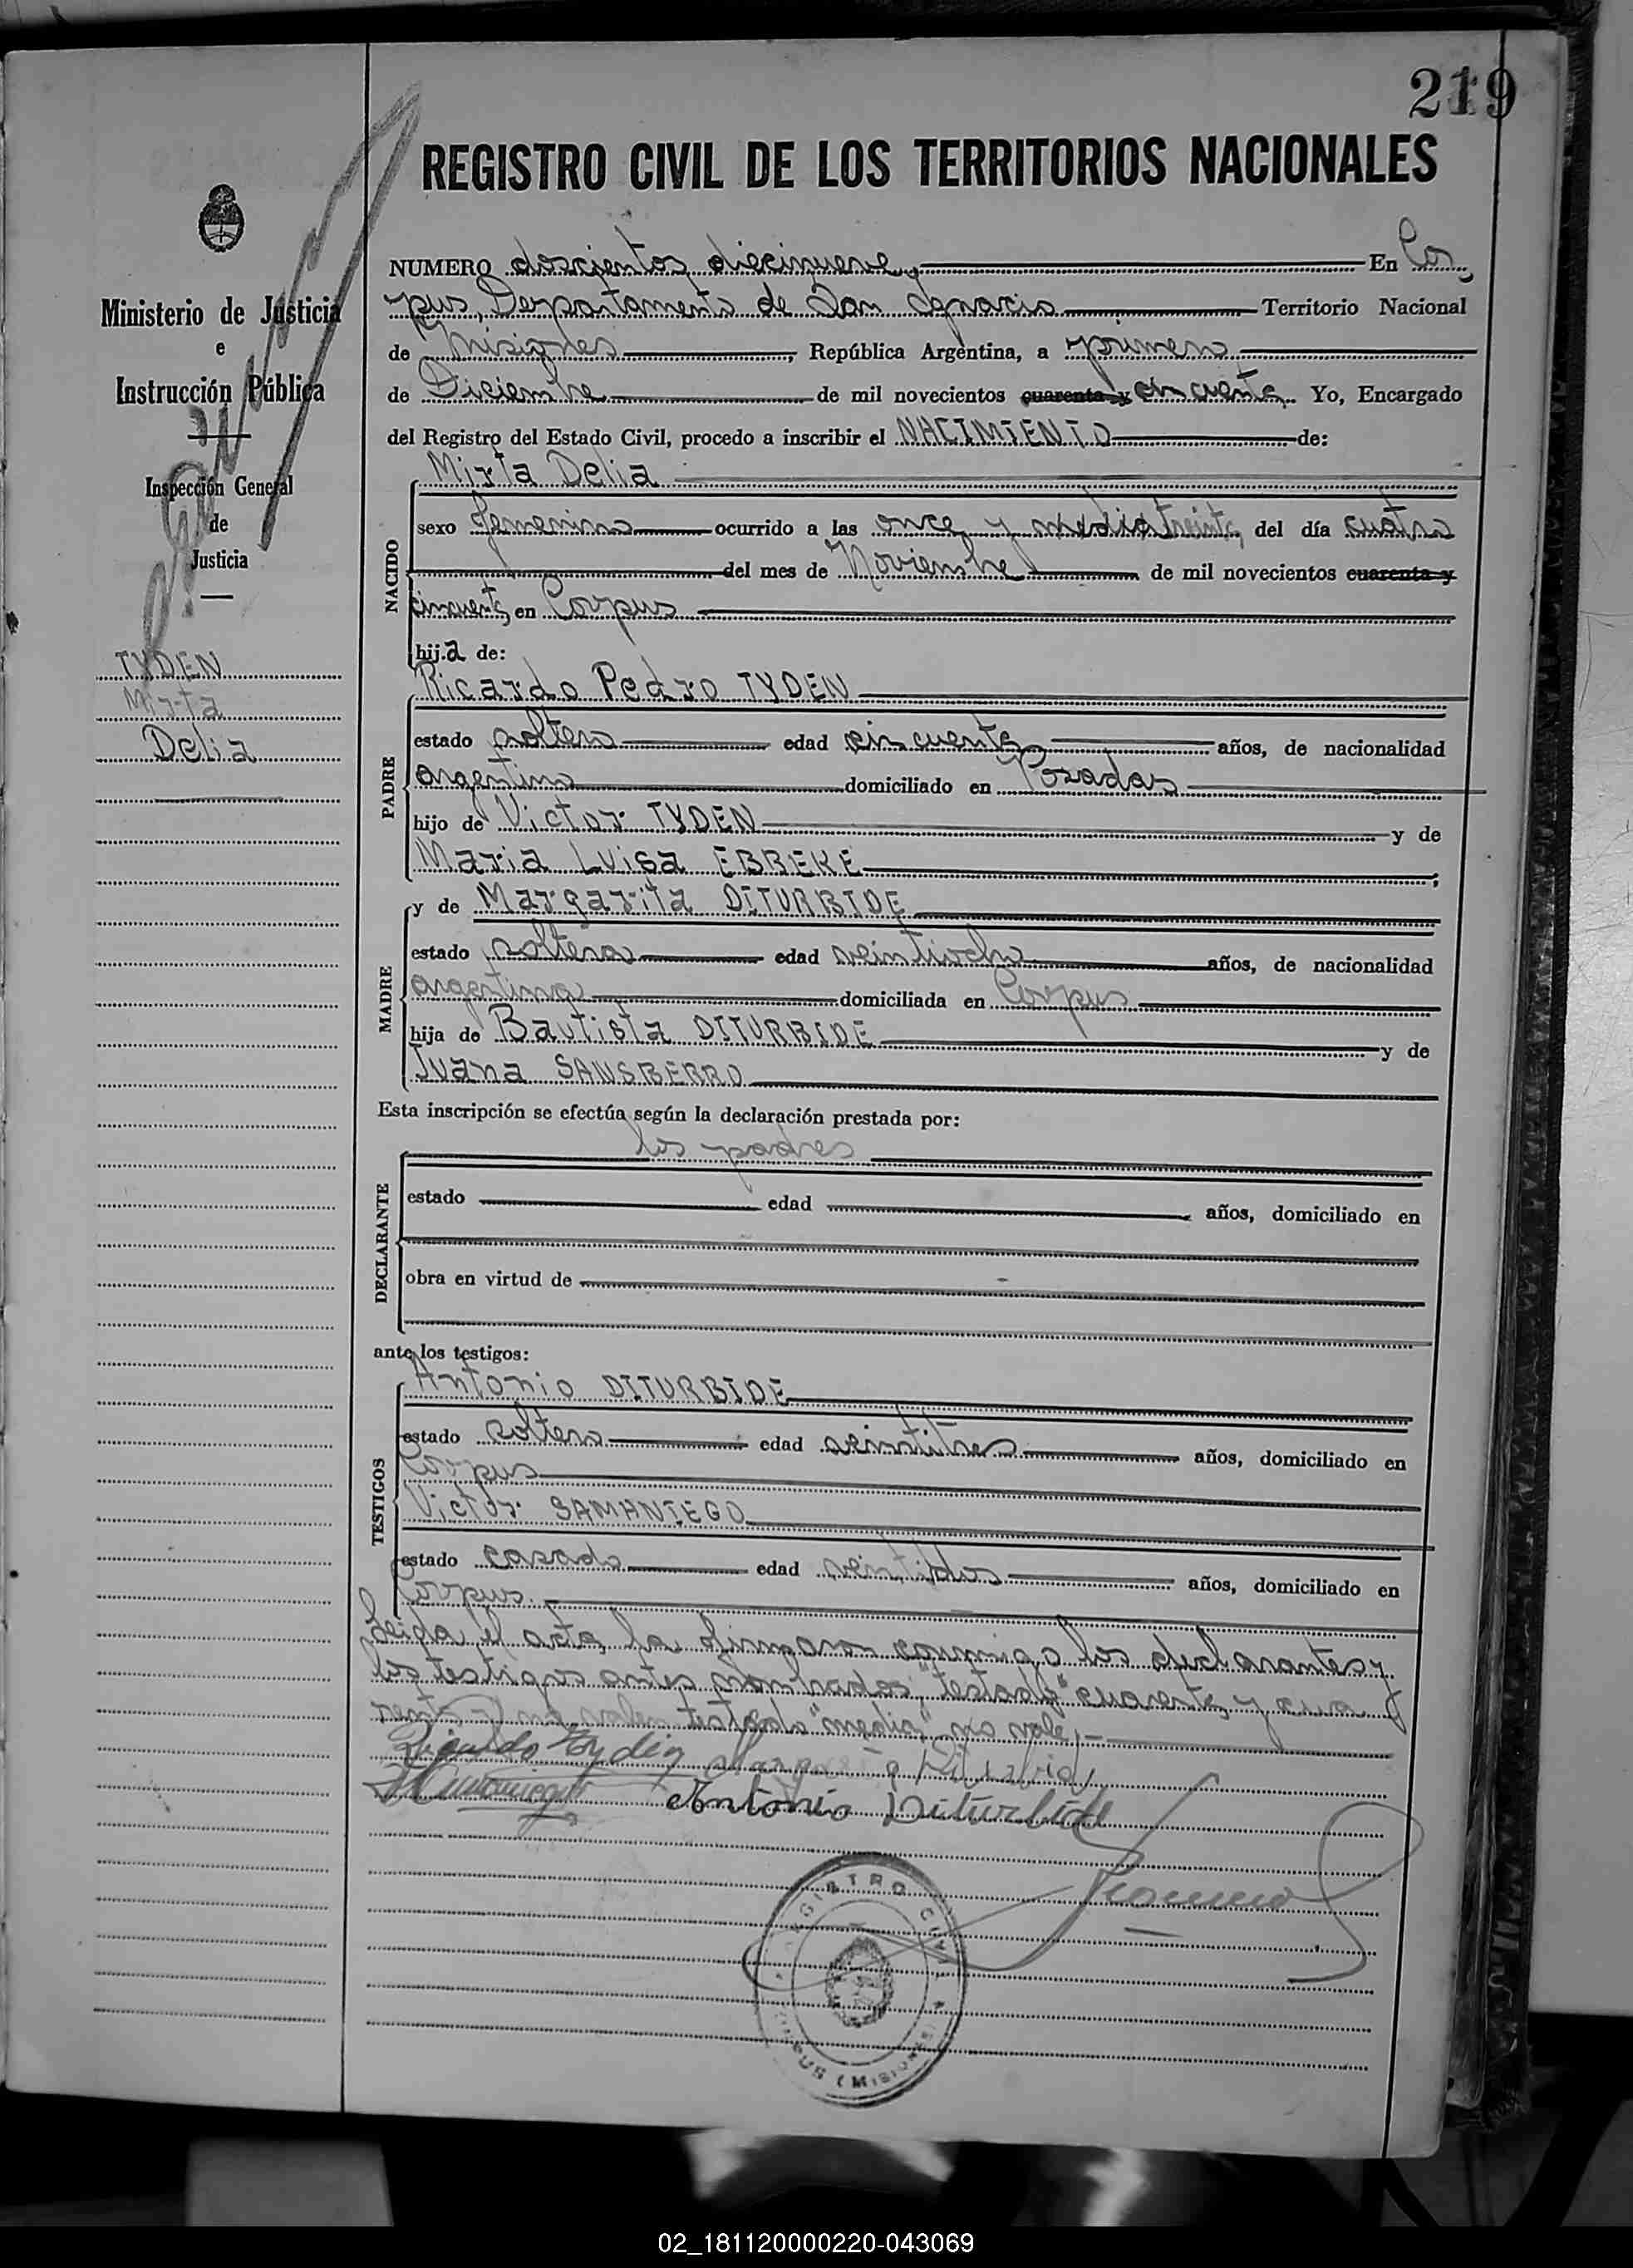 219
REGISTRO CIVIL DE LOS TERRITORIOS NACIONALES
Ministerio de Justicia
e
Instrucción Pública
Inspección General
de
Justicia
TYDEN
Mirta
Delia
NUMERO doscientos diecinueve, En Cor
pus, Departamento de San Ignacio Territorio Nacional
de Misiones, República Argentina, a primero
de Diciembre de mil novecientos cuarenta y cincuenta. Yo, Encargado
del Registro del Estado Civil, procedo a inscribir el NACIMIENTO de:
Mirta Delia
NACIDO
sexo femenino ocurrido a las once y media treinta, del día cuatro
del mes de Noviembre de mil novecientos cuarenta y
cincuenta, en Corpus
hija de:
Ricardo Pedro TYDEN
PADRE
estado soltero edad cincuenta años, de nacionalidad
argentino domiciliado en Posadas
hijo de Victor TYDEN y de
Maria Luisa EBREKE;
MADRE
y de Margarita DITURBIDE
estado soltera edad veintiocho años, de nacionalidad
argentina domiciliada en Corpus
hija de Bautista DITURBIDE y de
Juana SANSBERRO
Esta inscripción se efectúa según la declaración prestada por:
los padres
DECLARANTE
estado edad años, domiciliado en
obra en virtud de
ante los testigos:
TESTIGOS
Antonio DITURBIDE
estado soltero edad veintitres años, domiciliado en
Corpus
Victor SAMANIEGO
estado casado edad veintidos años, domiciliado en
Corpus.
Leida el acta, la firmaron conmigo los declarantes y
los testigos antes nombrados, testado "cuarenta y cua
renta y" no valen testado "media" no vale,
Ricardo Tyden Margarita Diturbide
Antonio Diturbide
REGISTRO CIVIL
CORPUS (MISIONES)
02_181120000220-043069